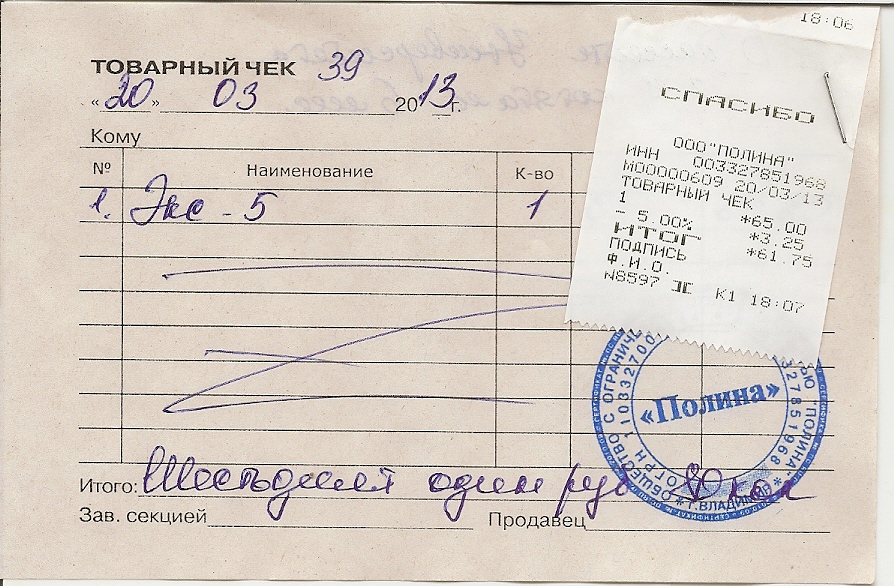 ТОВАРНЫЙ ЧЕК 39
«20» 03 2013 г.
Кому
№ Наименование К-во
1. Экс - 5 1
Итого: Шестьдесят один руб коп
Зав. секцией Продавец
18:06
СПАСИБО
ООО"ПОЛИНА"
ИНН 003327851968
М00000609 20/03/13
ТОВАРНЫЙ ЧЕК
1 *65.00
- 5.00% *3.25
ИТОГ *61.75
ПОДПИСЬ
Ф.И.О.
№8597 К1 18:07
«Полина»
ОБЩЕСТВО С ОГРАНИЧЕ
ЬЮ "ПОЛИНА"
ОГРН 110332700
327851968
* Г.ВЛАДИМИР *